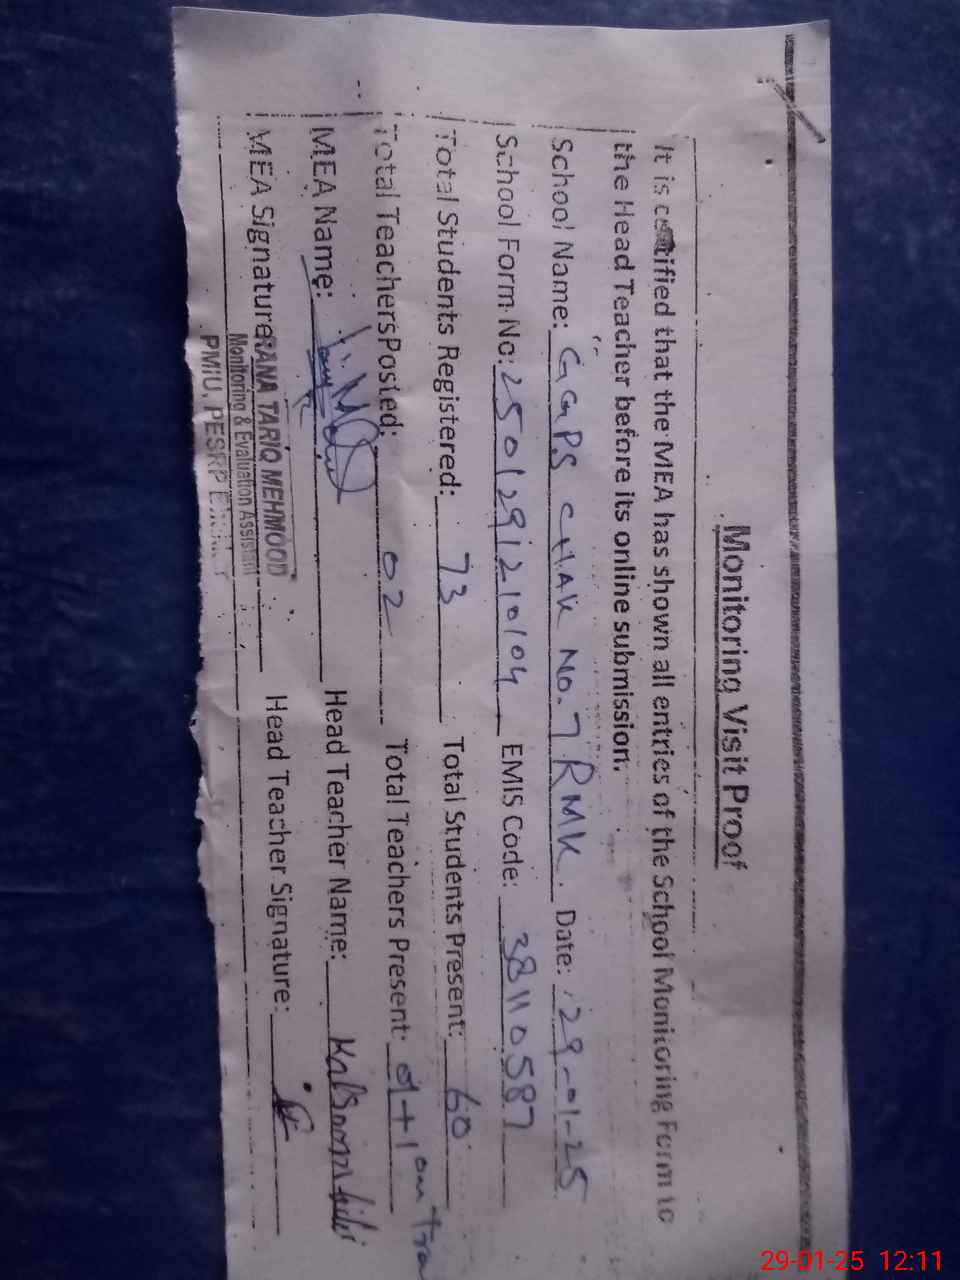 Monitoring Visit Proof
It is certified that the MEA has shown all entries of the School Monitoring Form to
the Head Teacher before its online submission.
School Name: GGPS CHAK No. 7 RMK. Date: 29-01-25
School Form No: 2501291210104 EMIS Code: 38110587
Total Students Registered: 73 Total Students Present: 60
Total Teachers Posted: 02 Total Teachers Present: 01+1 on
MEA Name: Head Teacher Name: Kalsoom
MEA Signature: Head Teacher Signature:
RANA TARIQ MEHMOOD
Monitoring & Evaluation Assistant
PMIU, PESRP
29-01-25 12:11